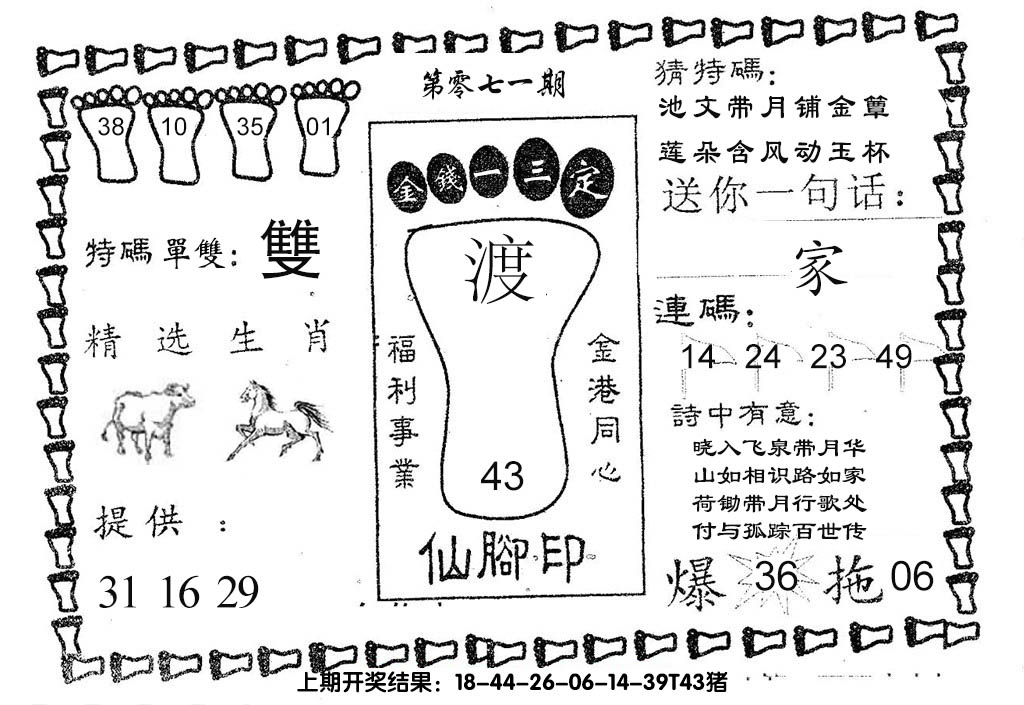 第零七一期
38 10 35 01
特碼單雙：雙
精选生肖
提供：
31 16 29
金錢一三定
渡
福利事業
金港同心
43
仙腳印
猜特碼：
池文带月铺金蕈
莲朵含风动玉杯
送你一句话：
家
連碼：
14 24 23 49
詩中有意：
晓入飞泉带月华
山如相识路如家
荷锄带月行歌处
付与孤踪百世传
爆 36 拖 06
上期开奖结果：18-44-26-06-14-39T43猪